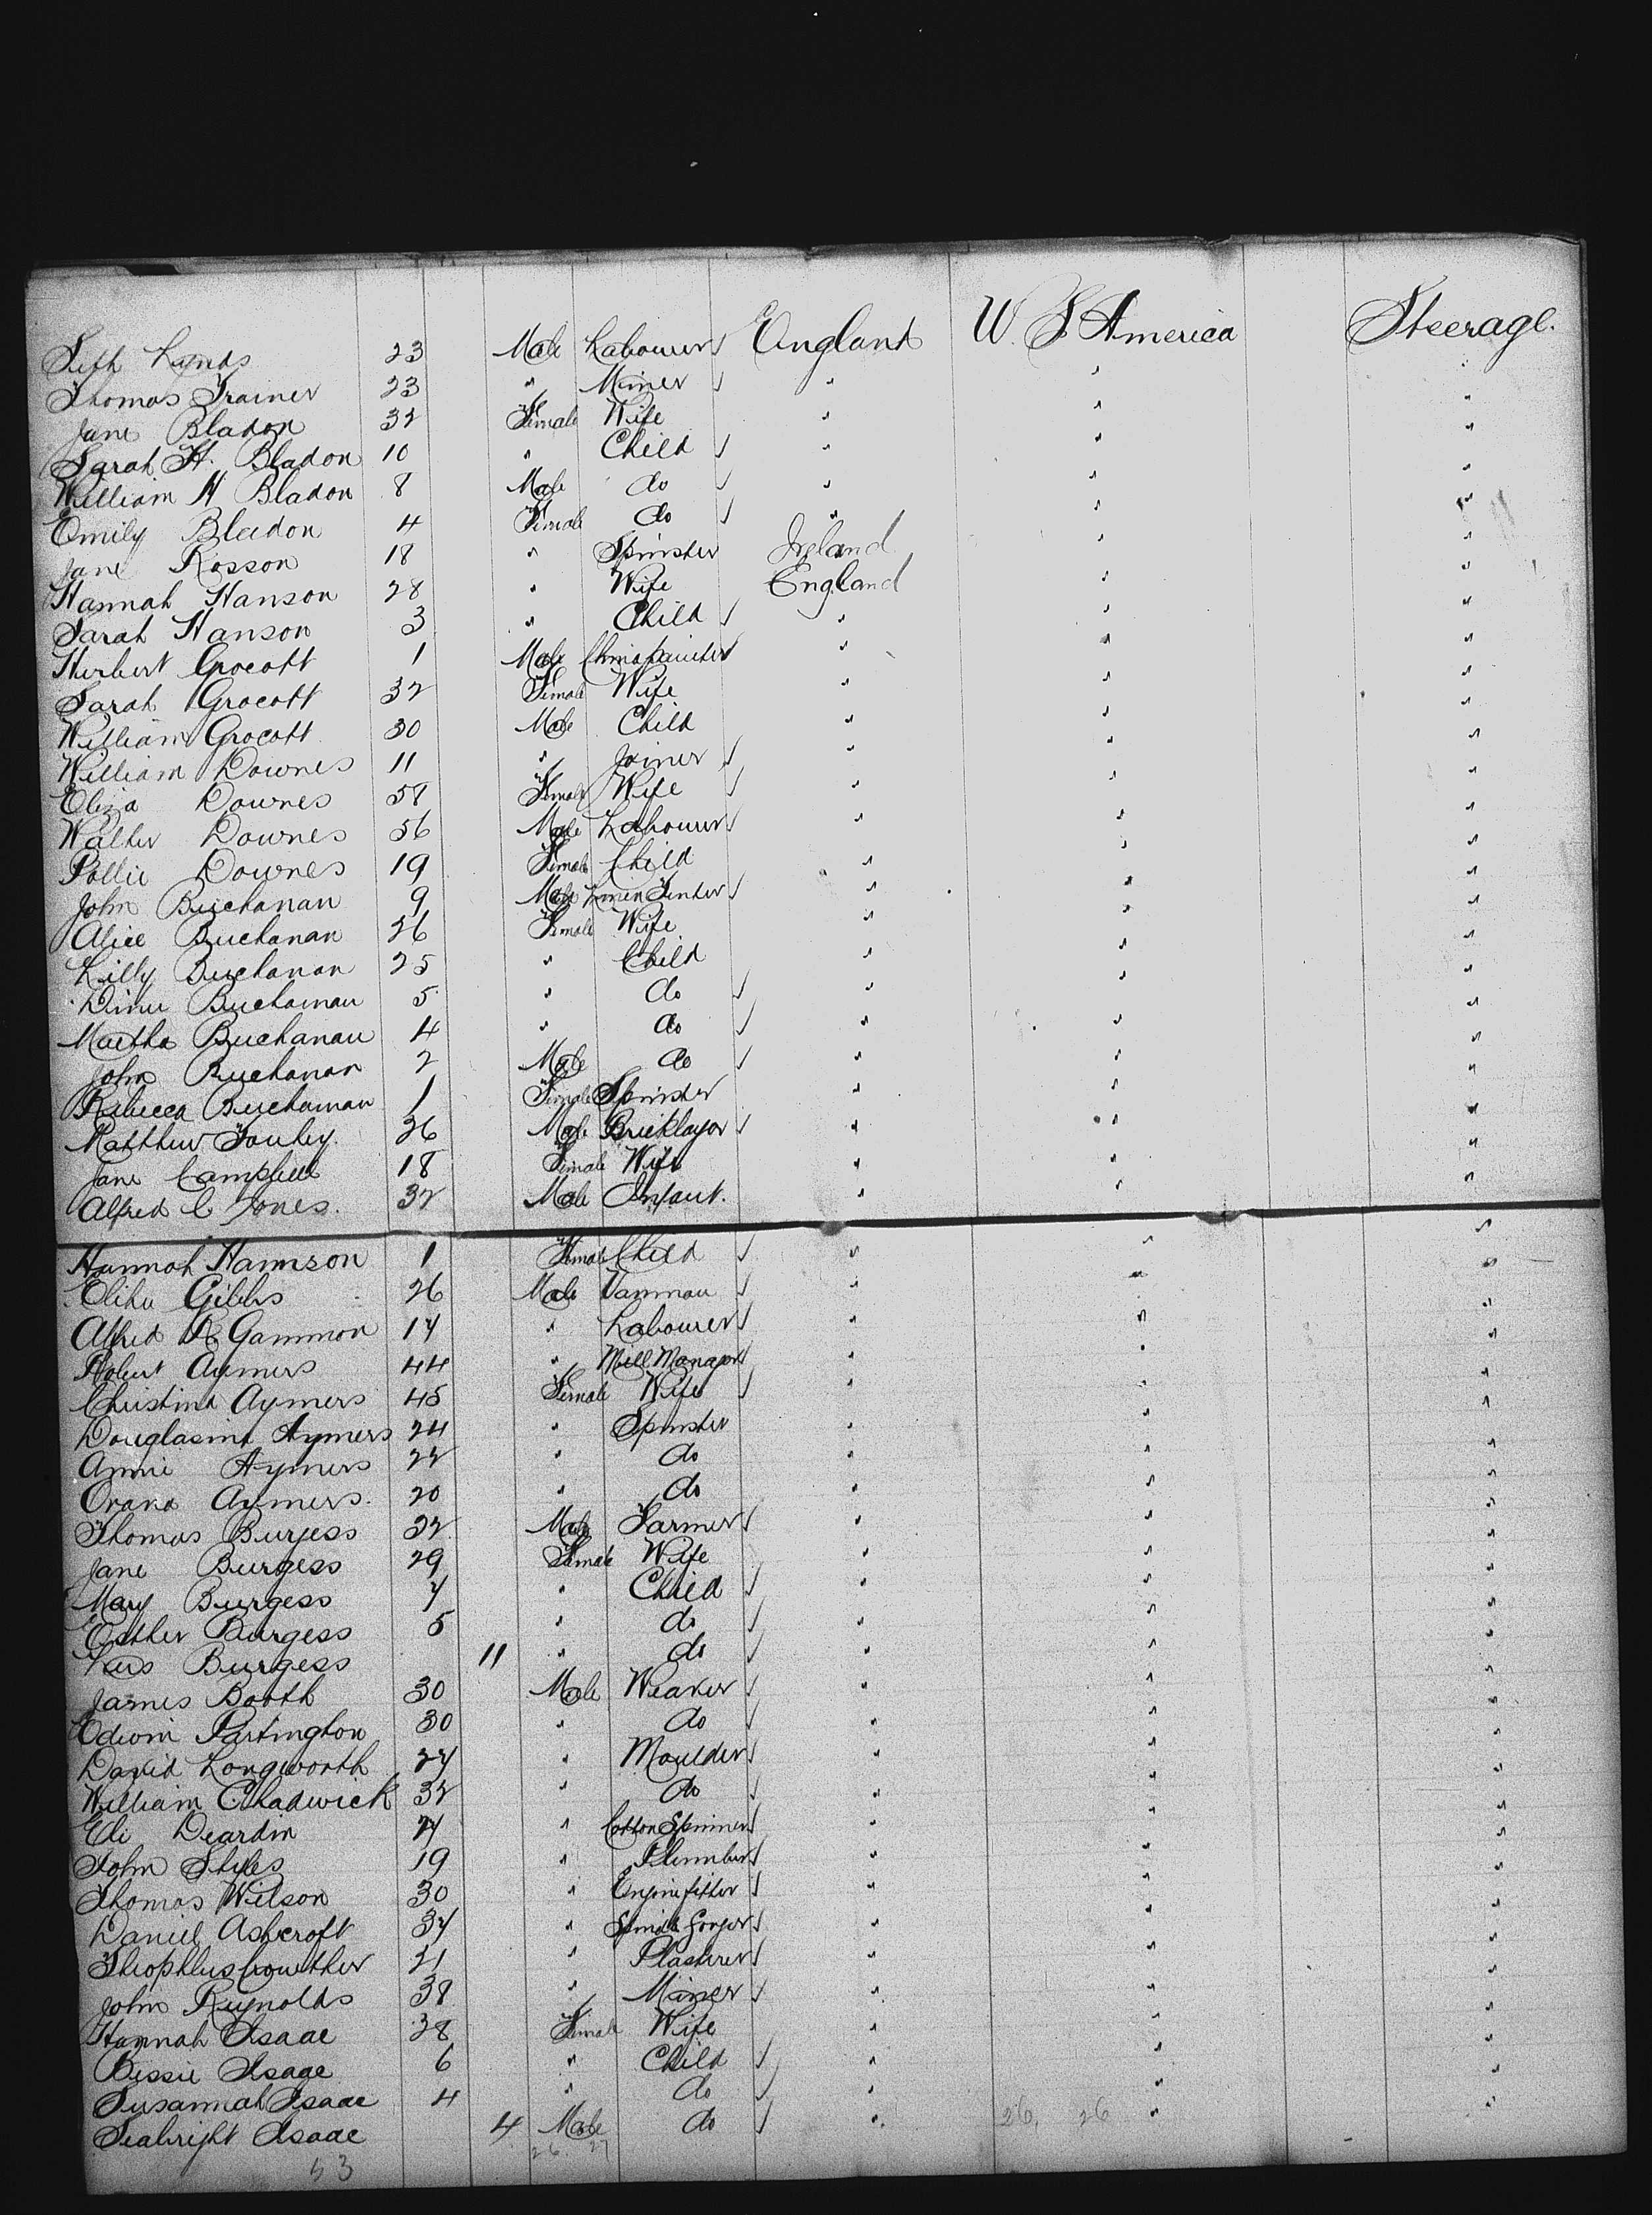 Seth Lynds 23 Male Labourer England U. S America Steerage.
Thomas Trainer 23 " Miner " " "
Jane Bladon 32 Female Wife " " "
Sarah H. Bladon 10 " Child " " "
William H Bladon 8 Male do " " "
Emily Bladon 4 Female do " " "
Jane Rosson 18 " Spinster Ireland " "
Hannah Hanson 28 " Wife England " "
Sarah Hanson 3 " Child " " "
Herbert Grocott 1 Male Chinapainter " " "
Sarah Grocott 32 Female Wife " " "
William Grocott 30 Male Child " " "
William Downes 11 " Joiner " " "
Eliza Downes 58 Female Wife " " "
Walter Downes 56 Male Labourer " " "
Pollie Downes 19 Female Child " " "
John Buchanan 9 Male " " "
Alice Buchanan 26 Female Wife " " "
Lilly Buchanan 25 " Child " " "
Buchanan 5 " do " " "
Martha Buchanan 4 " do " " "
John Buchanan 2 Male do " " "
Rebecca Buchanan 1 Female Spinster " " "
Matthew 26 Male Bricklayer " " "
Jane Campbell 18 Female Wife " " "
Alfred C Jones. 32 Male Infant. " " "
Hannah Hannson 1 Female Child " " "
Elihu Gibbs 26 Male Vanman " " "
Alfred R Gammon 17 " Labourer " " "
Robert Aymers 44 " Mill Manager " " "
Christina Aymers 45 Female Wife " " "
Douglasina Aymers 24 " Spinster " " "
Annie Aymers 22 " do " " "
Orana Aymers. 20 " do " " "
Thomas Burgess 32 Male Farmer " " "
Jane Burgess 29 Female Wife " " "
Mary Burgess 7 " Child " " "
Esther Burgess 5 " do " " "
Burgess 11 " do " " "
James Booth 30 Male Weaver " " "
Edwin Partington 30 " do " " "
David Longworth 27 " Moulder " " "
William Chadwick 32 " do " " "
Eli Deardin 27 " Cotton Spinner " " "
John Styles 19 " Plumber " " "
Thomas Wilson 30 " Enginefitter " " "
Daniel Ashcroft 37 " " " "
Theophilus Crowther 21 " Plasterer " " "
John Reynolds 38 " Miner " " "
Hannah Isaac 28 Female Wife " " "
Bessie Isaac 6 " Child " " "
Susannah Isaac 4 " do " " "
Seabright Isaac 4 Male do " 26. 26 " "
53 26. 27